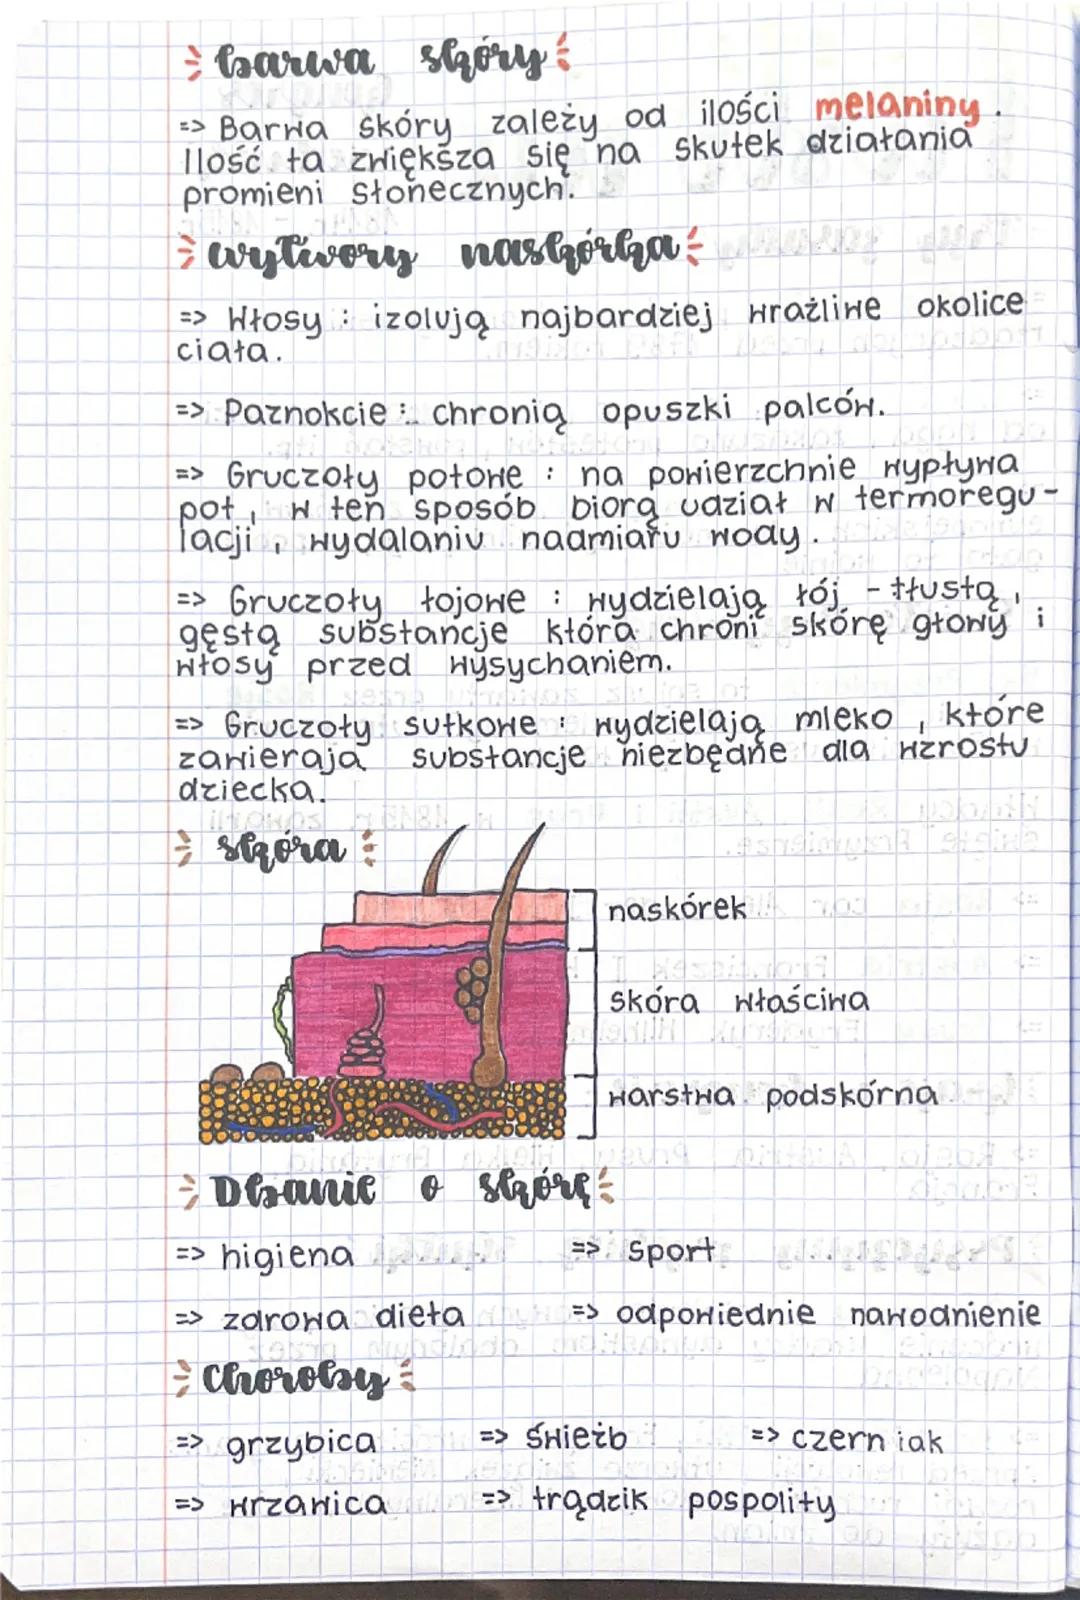 barwa skóry
=> Barwa skóry zależy od ilości melaniny.
Ilość ta zwiększa się na skutek działania
promieni słonecznych.
wytwory naskórka
=> Włosy : izolują najbardziej wrażliwe okolice
ciała.
=> Paznokcie : chronią opuszki palców.
=> Gruczoły potowe : na powierzchnie wypływa
pot, w ten sposób biorą udział w termoregu-
lacji, wydalaniu nadmiaru wody.
=> Gruczoły łojowe : wydzielają łój - tłustą,
gęstą substancje która chroni skórę głowy i
włosy przed wysychaniem.
=> Gruczoły sutkowe : wydzielają mleko, które
zawierają substancje niezbędne dla wzrostu
dziecka.
skóra
naskórek
skóra właściwa
warstwa podskórna
Dbanie o skórę
=> higiena => sport
=> zdrowa dieta => odpowiednie nawodnienie
Choroby
=> grzybica => świeżb => czerniak
=> wrzawica => trądzik pospolity